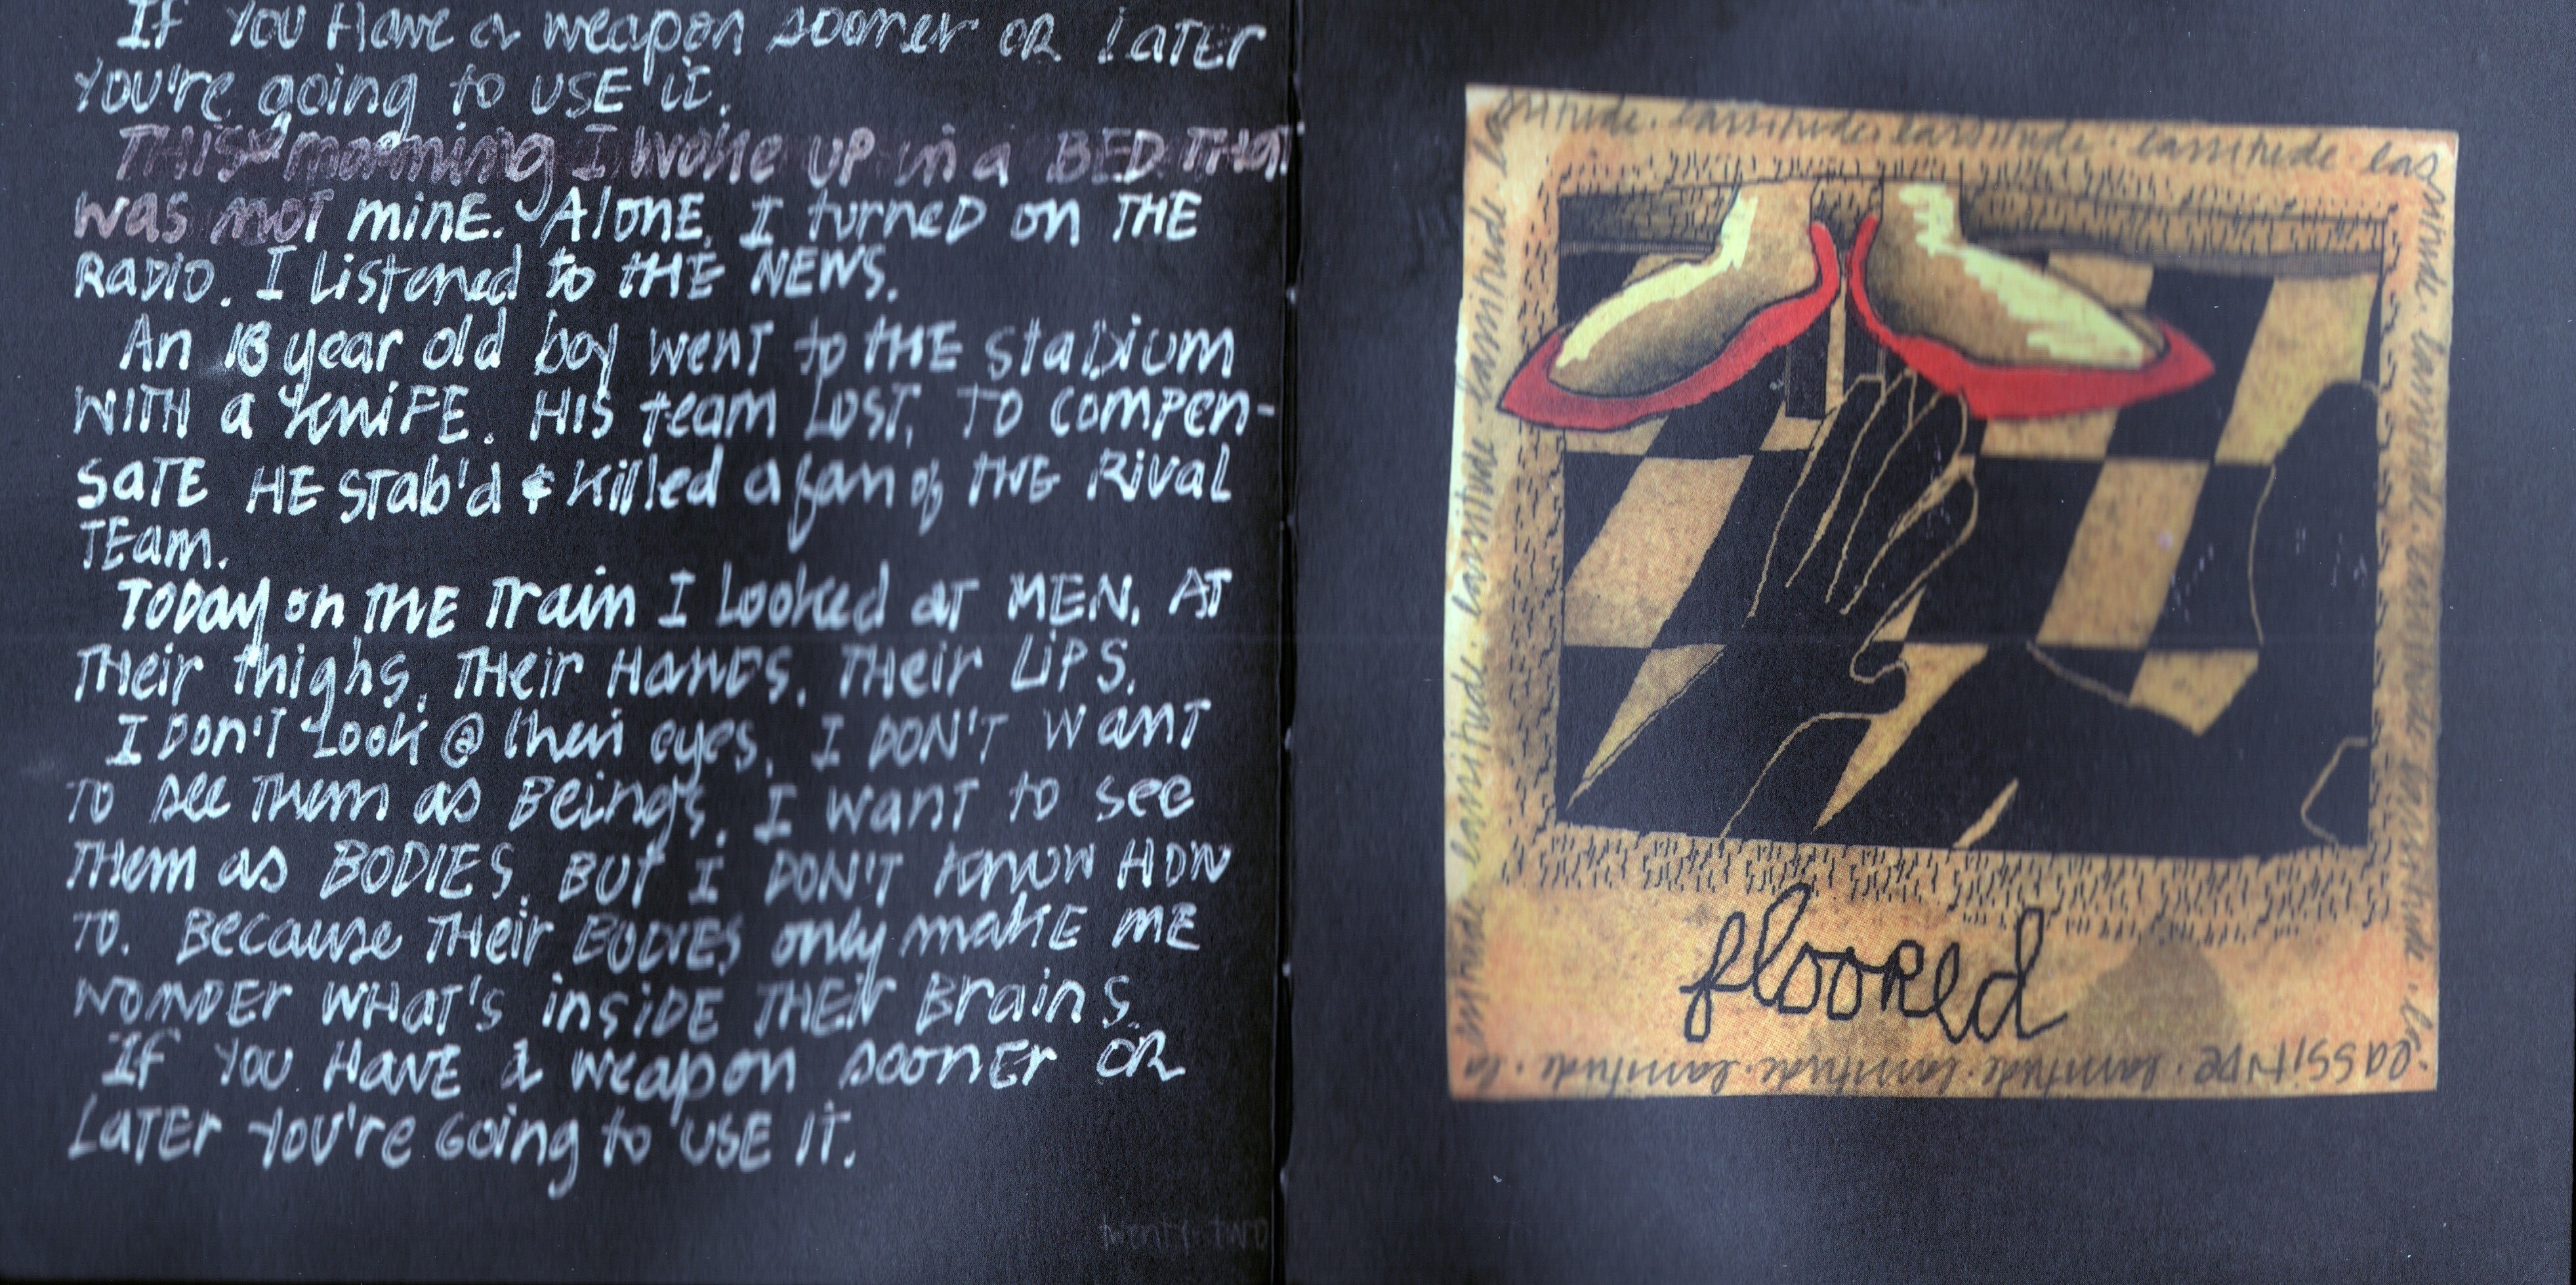 If you Have a weapon sooner or Later
You're going to USE it.
THIS morning I woke UP in a BED THAT
was not mine. Alone. I turned on THE
Radio. I Listened to THE NEWS.
An 18 year old boy went to THE staDium
WITH a KniFE. HIS team LOST. TO compen-
saTE HE stab'd & Killed a fan of THE Rival
TEam.
TODay on THE Train I Looked at MEN. AT
THeir thighs. THeir HanDs. THeir LiPS.
I Don't Look @ their eyes. I DON'T want
TO see Them as Beings. I want to see
THem as BODIES. BUT I DON'T KNOW HOW
TO. Because THeir BODIES only makE ME
WONDER WHAT'S insiDE THEir Brains.
If You HavE a weapon sooner OR
LaTEr You're Going to USE IT.
twenty-two
lassitude. lassitude. lassitude. lassitude. lassitude
floored